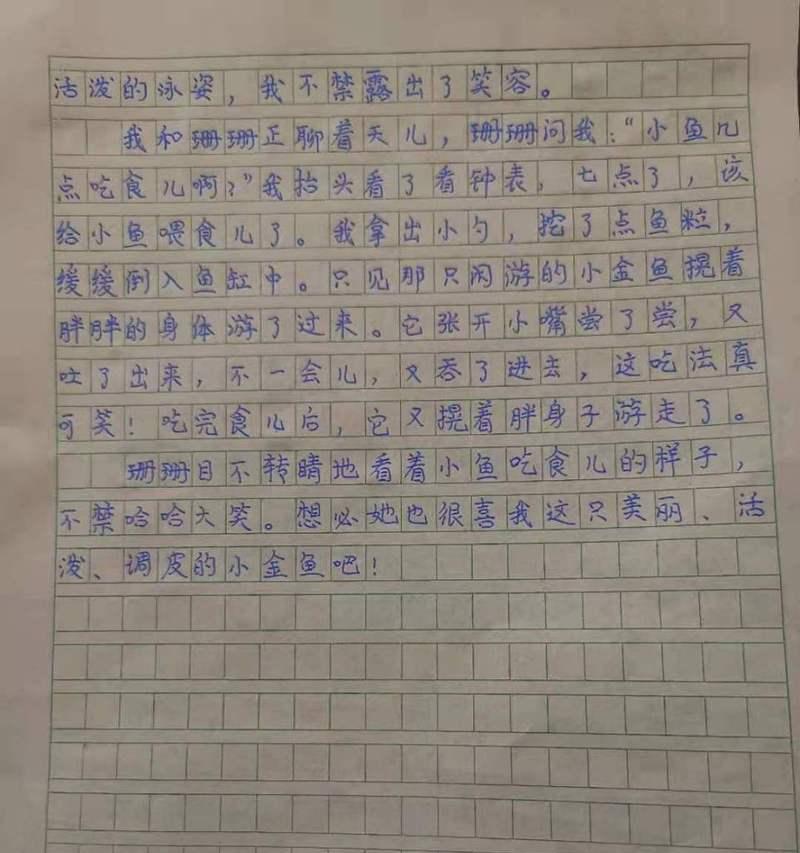 活泼的泳姿，我不禁露出了笑容。
我和珊珊正聊着天儿，珊珊问我："小鱼几
点吃食儿啊？"我抬头看了看钟表，七点了，该
给小鱼喂食儿了。我拿出小勺，挖了点鱼粒，
缓缓倒入鱼缸中。只见那只闲游的小金鱼摆着
胖胖的身体游了过来。它张开小嘴尝了尝，又
吐了出来，不一会儿，又吞了进去，这吃法真
可笑！吃完食儿后，它又摆着胖身子游走了。
珊珊目不转睛地看着小鱼吃食儿的样子，
不禁哈哈大笑。想必她也很喜我这只美丽、活
泼、调皮的小金鱼吧！